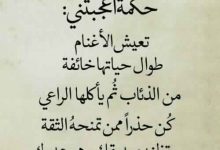 حكمة أعجبتني:
تعيش الأغنام
طوال حياتها خائفة
من الذئاب ثُم يأكلها الراعي
كُن حذراً ممن تمنحهُ الثقة